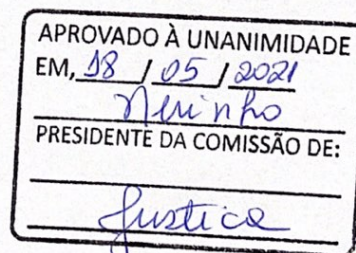 APROVADO À UNANIMIDADE
EM, 18 / 05 / 2021
Nerinho
PRESIDENTE DA COMISSÃO DE:
Justiça